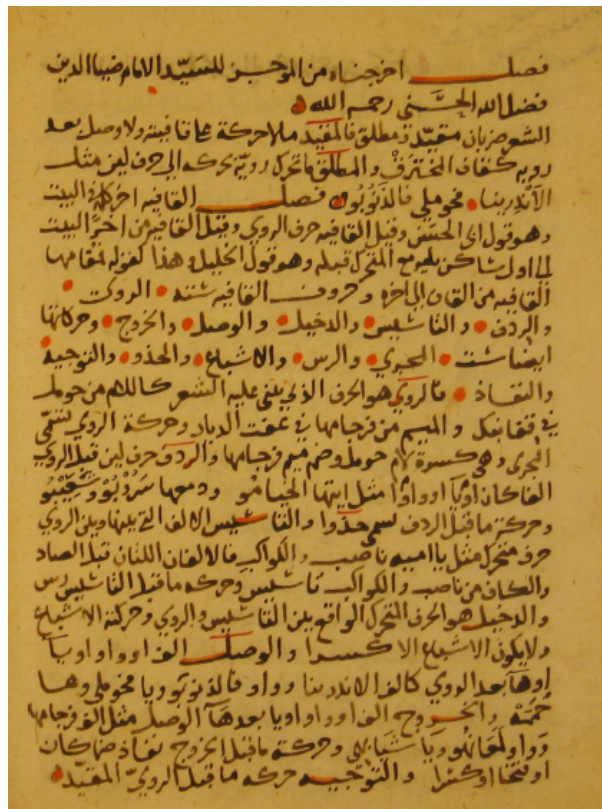 فصل اخرجناه من الموجز للسيد الامام ضيا الدين
فضل الله الحسنى رحمه الله
الشعر ضربان مقيد ومطلق فالمقيد ما لا حركة على قافيته ولا وصل بعد
رويه كقفاف المخترق والمطلق ما تحرك رويه بحركه الى حرف لين مثل
الاندرينا فحوملي فالذنوبو فصل القافيه اخر البيت
وهو قول ابى الحسن وقيل القافيه حرف الروي وقيل القافيه من اخر البيت
الى اول ساكن يليه مع المتحرك قبله وهو قول الخليل وهذا كقوله فمقامها
القافيه من القاف الى اخره وحروف القافيه سته الروى
والردف والتاسيس والدخيل والوصل والخروج وحركاتها
ايضا ست المجرى والرس والاشباع والحذو والتوجيه
والنفاذ فالروي هو الحرف الذي يبنى عليه الشعر كاللام من حومل
في قفا نبك والميم من فرجامها في عفت الديار وحركة الروي تسمى
المجرى وهى كسرة لام حومل وضم ميم فرجامها والردف حرف لين قبل الروي
الفا كان او يآ او واوا مثل ايتها الخيامو ودمعها سروبو
وحركة ما قبل الردف تسمى حذوا والتاسيس الالف التى بينها وبين الروي
حرف متحرك مثل يا اميمه ناصب والكواكب فالالفان اللتان قبل الصاد
والكاف من ناصب والكواكب تاسيس وحركه ما قبل التاسيس رس
والدخيل هو الحرف المتحرك الواقع بين التاسيس والروي وحركته الاشباع
ولا يكون الاشباع الا كسرا والوصل الف او واو او يآ
او هآ بعد الروي كالف الاندرينا وواو فالذنوبو ويا فحوملى وها
والخروج الف او واو او يا بعد هآ الوصل مثل الف فرجامها
وواو ويا وحركة ما قبل الخروج نفاذ ضما كان
او فتحا او كسرا والتوجيه حركه ما قبل الروي المقيد